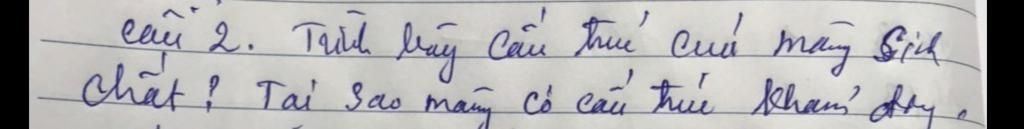 Câu 2. Trình bày Cấu trúc của màng Sinh
chất? Tại sao màng có cấu trúc khảm động.